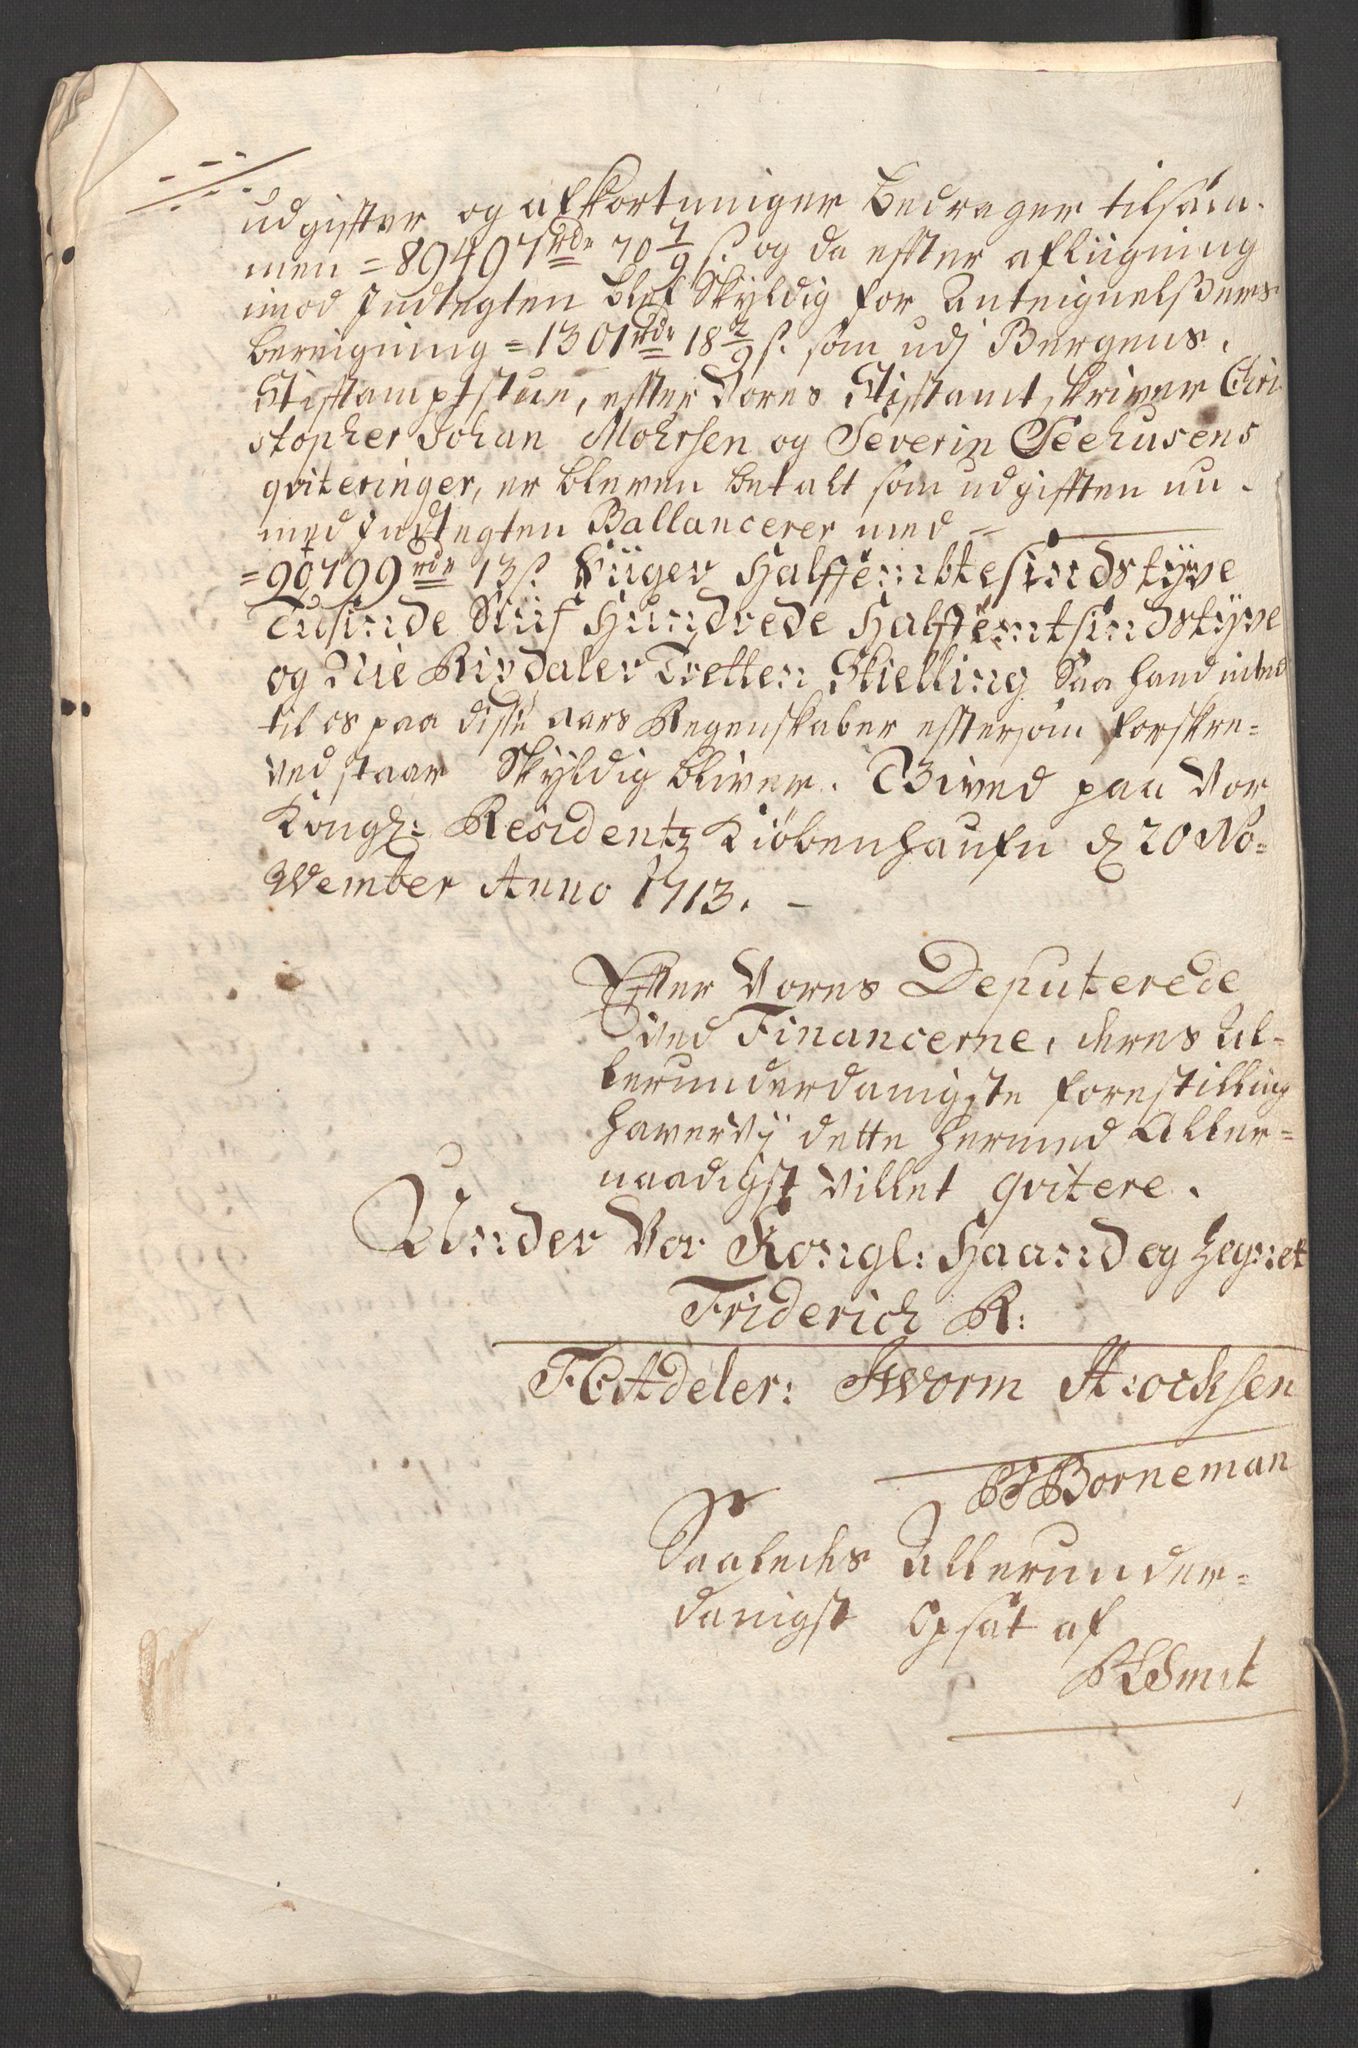 udgifter og afkortninger bedrager tilsam-
men = 89497 rdr 70 7/9 s. og da effter afliigning
imod Indtegten blef Skyldig for Anteignelßers
bereigning = 1301 rdr 18 2/9 s. som udj Bergens.
Stifftamptstue, effter Vores Stifftamtskriver Chri
stopher Johan Mohrsen og Severin Seehusens
qviteringer, er bleven betalt som udgifften nu-
med Indtegten Ballancerer med =
= 90799 rdr 13 s. siiger Halffembtesindstyve
Tusinde Siuf Hundrede Halffemtsindstyve
og Nie Rixdaler Tretten Skielling Saa hand inted
til os paa disse aars Regenskaber effter som forskre=
ved staar Skyldig bliver. Gived paa Vor
Kongl: Residentz Kiöbenhaufn d 20 No=
Vember Anno 1713. -
Effter Vores Deputerede
ved Financerne, deres Al-
lerunderdanigste forestilling
haver Vj dette hermed Aller=
naadigst Villet qvitere.
Under Vor Kongl: Haand og Zegnet
Friderich R:
F C Adeler: J Worm Stocksen
Borneman
Saaledes Allerunder=
danigst Opsat af
Smit